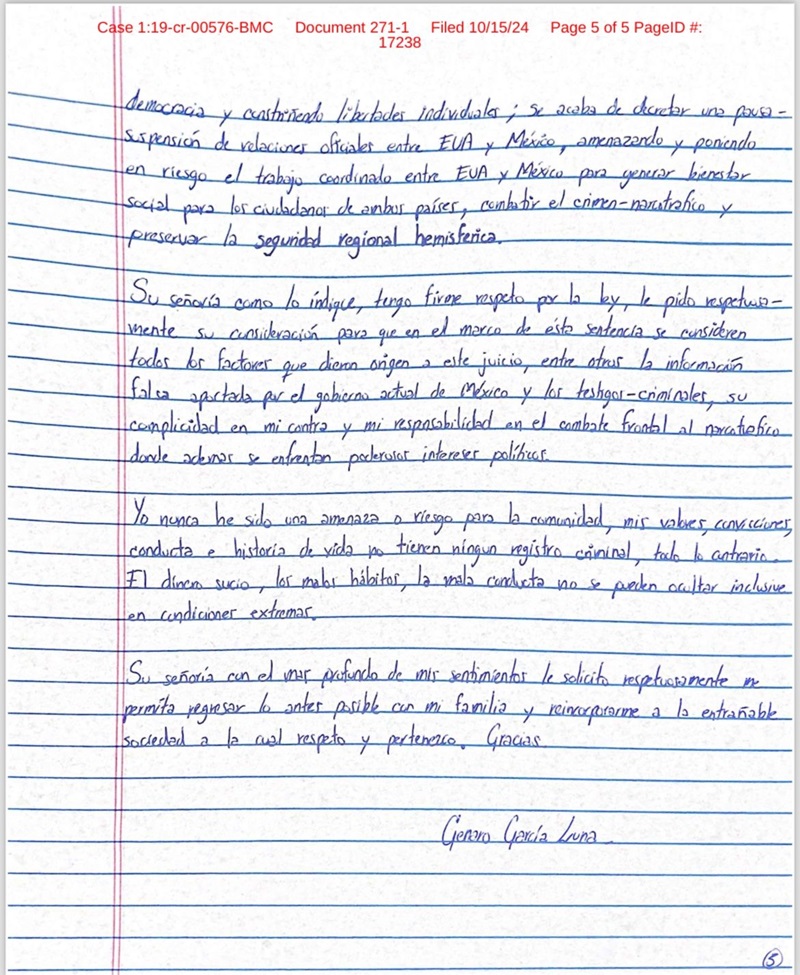 Case 1:19-cr-00576-BMC Document 271-1 Filed 10/15/24 Page 5 of 5 PageID #:
17238
democracia y constriñendo libertades individuales; se acaba de decretar una pausa-
suspensión de relaciones oficiales entre EUA y México, amenazando y poniendo
en riesgo el trabajo coordinado entre EUA y México para generar bienestar
social para los ciudadanos de ambos países, combatir el crimen-narcotrafico y
preservar la seguridad regional hemisferica.
Su señoría como lo indique, tengo firme respeto por la ley, le pido respetuosa-
mente su consideración para que en el marco de ésta sentencia se consideren
todos los factores que dieron origen a este juicio, entre otros la información
falsa aportada por el gobierno actual de México y los testigos-criminales, su
complicidad en mi contra y mi responsabilidad en el combate frontal al narcotrafico
donde ademas se enfrentan poderosos intereses políticos.
Yo nunca he sido una amenaza o riesgo para la comunidad, mis valores, convicciones,
conducta e historia de vida no tienen ningun registro criminal, todo lo contrario.
El dinero sucio, los malos hábitos, la mala conducta no se pueden ocultar inclusive
en condiciones extremas.
Su señoría con el mas profundo de mis sentimientos le solicito respetuosamente me
permita regresar lo antes posible con mi familia y reincorporarme a la entrañable
sociedad a la cual respeto y pertenezco. Gracias.
Genaro García Luna
5